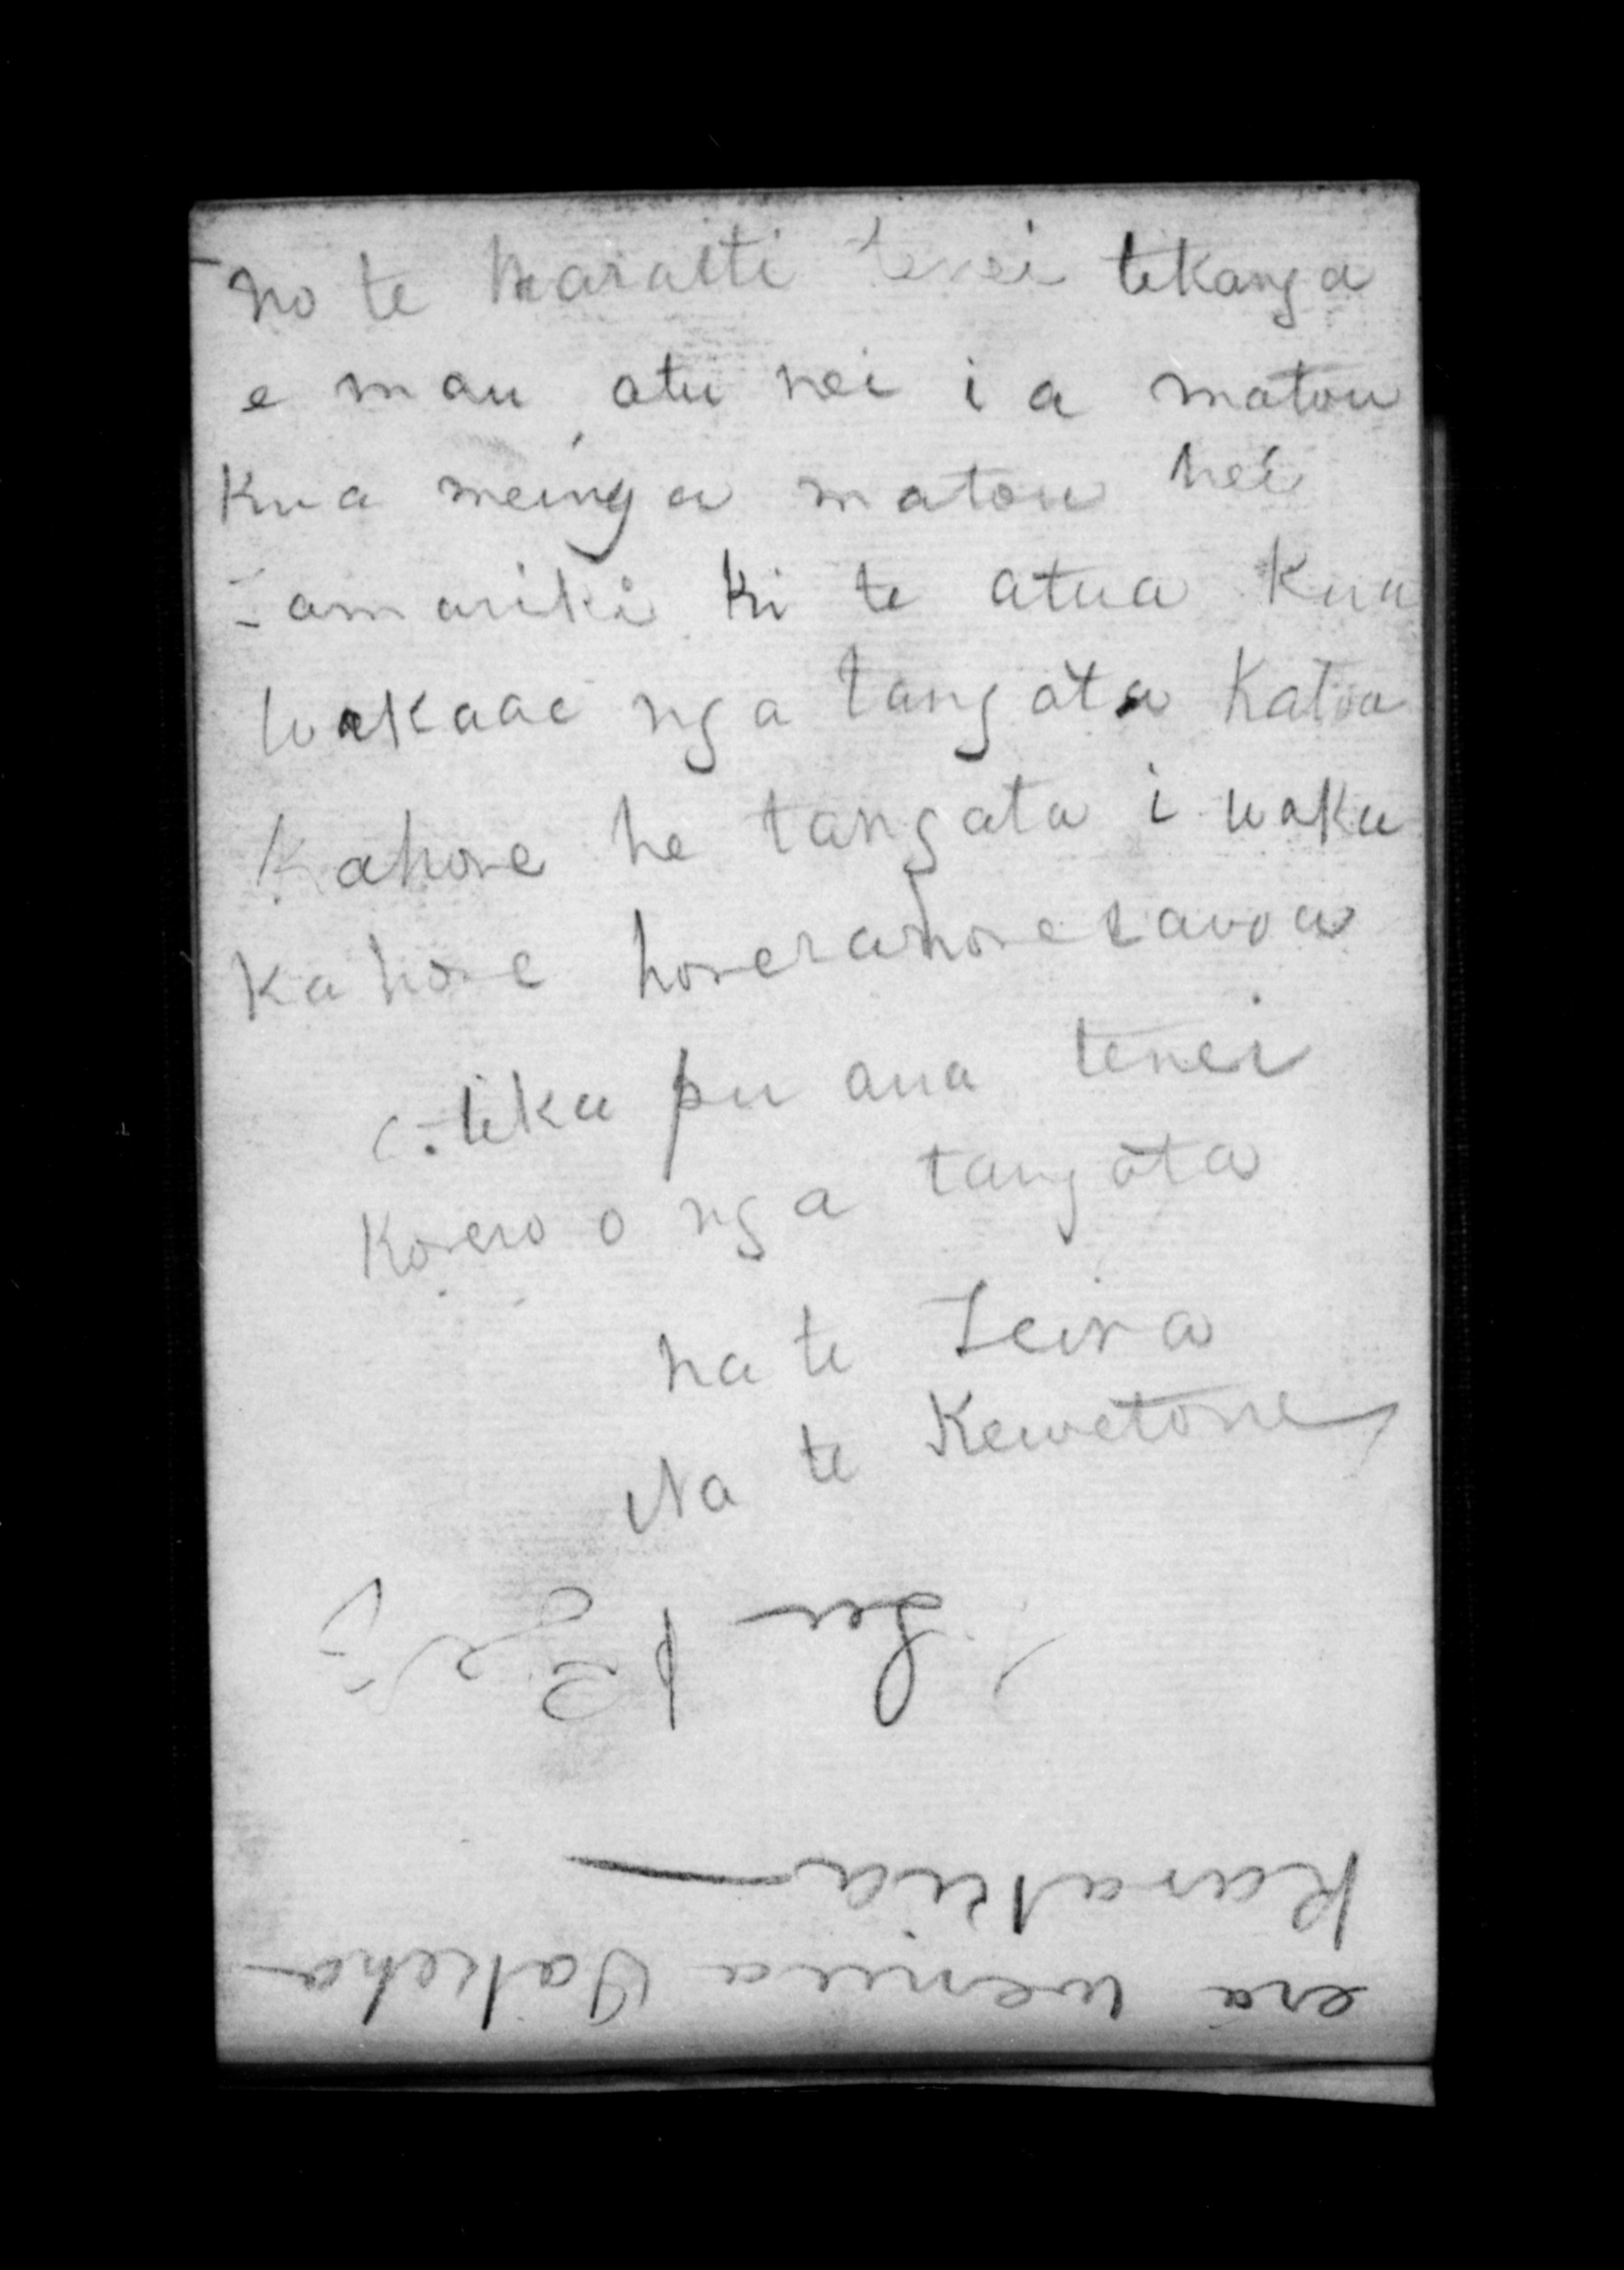 no te Maraiti tenei tikanga
e mau atu nei i a matou
Kua meinga matou hei
Tamariki ki te atua Kua
wakaae nga tangata Katoa
Kahore he tangata i waka
Kahore horerahore rawa
e tika pu ana tenei
Korero o nga tangata
na te Teira
Na te Kewetone
era wenua Pakeha
Karakia